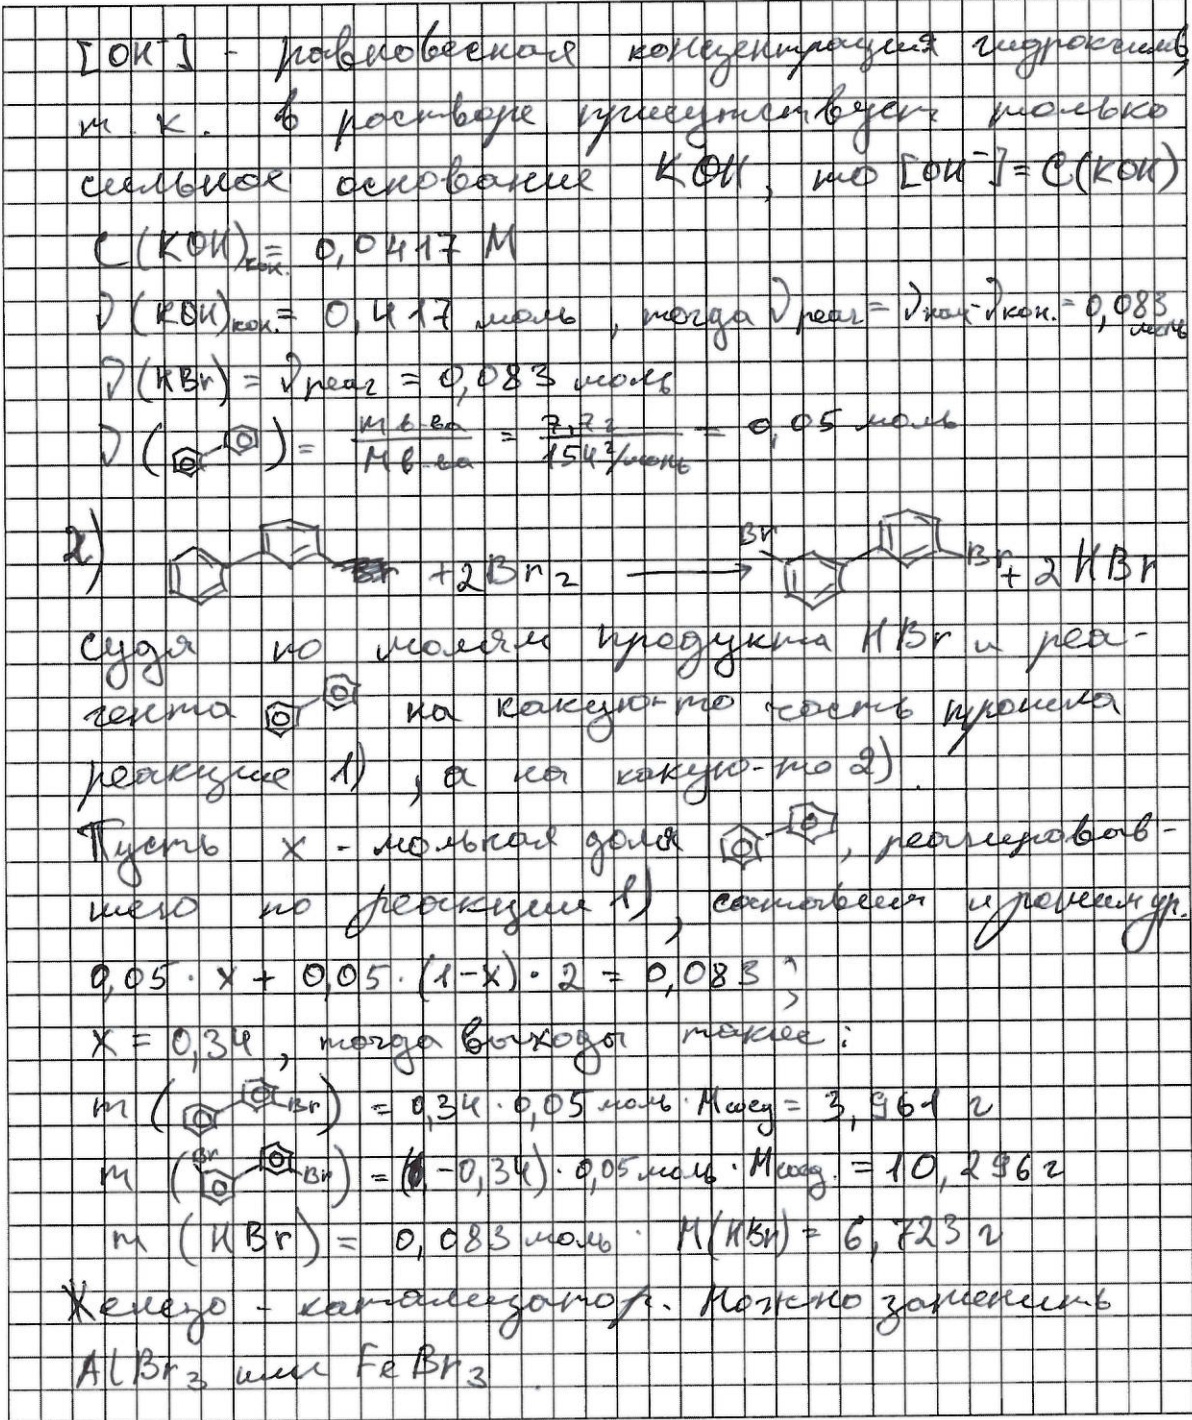 [OH⁻] - равновесная концентрация гидроксилов,
т. к. в растворе присутствует только
сильное основание KOH, то [OH⁻] = C(KOH)
C(KOH)кон. = 0,0417 M
ν(KOH)кон. = 0,417 моль, тогда ν реаг = ν нач - ν кон. = 0,083 моль
ν(HBr) = ν реаг = 0,083 моль
ν( ) = m в-ва / M в-ва = 7,7 г / 154 г/моль = 0,05 моль
2) + 2Br₂ → Br Br + 2HBr
судя по молям продукта HBr и реа-
гента на какую-то часть прошла
реакция 1), а на какую-то 2)
Пусть x - мольная доля , реагировав-
шего по реакции 1), составим и решим ур.
0,05 · x + 0,05 · (1-x) · 2 = 0,083;
x = 0,34, тогда выходы такие:
m ( Br) = 0,34 · 0,05 моль · M соед = 3,961 г
m (Br Br) = (1-0,34) · 0,05 моль · M соед. = 10,296 г
m (HBr) = 0,083 моль · M(HBr) = 6,723 г
Железо - катализатор. Можно заменить
AlBr₃ или FeBr₃